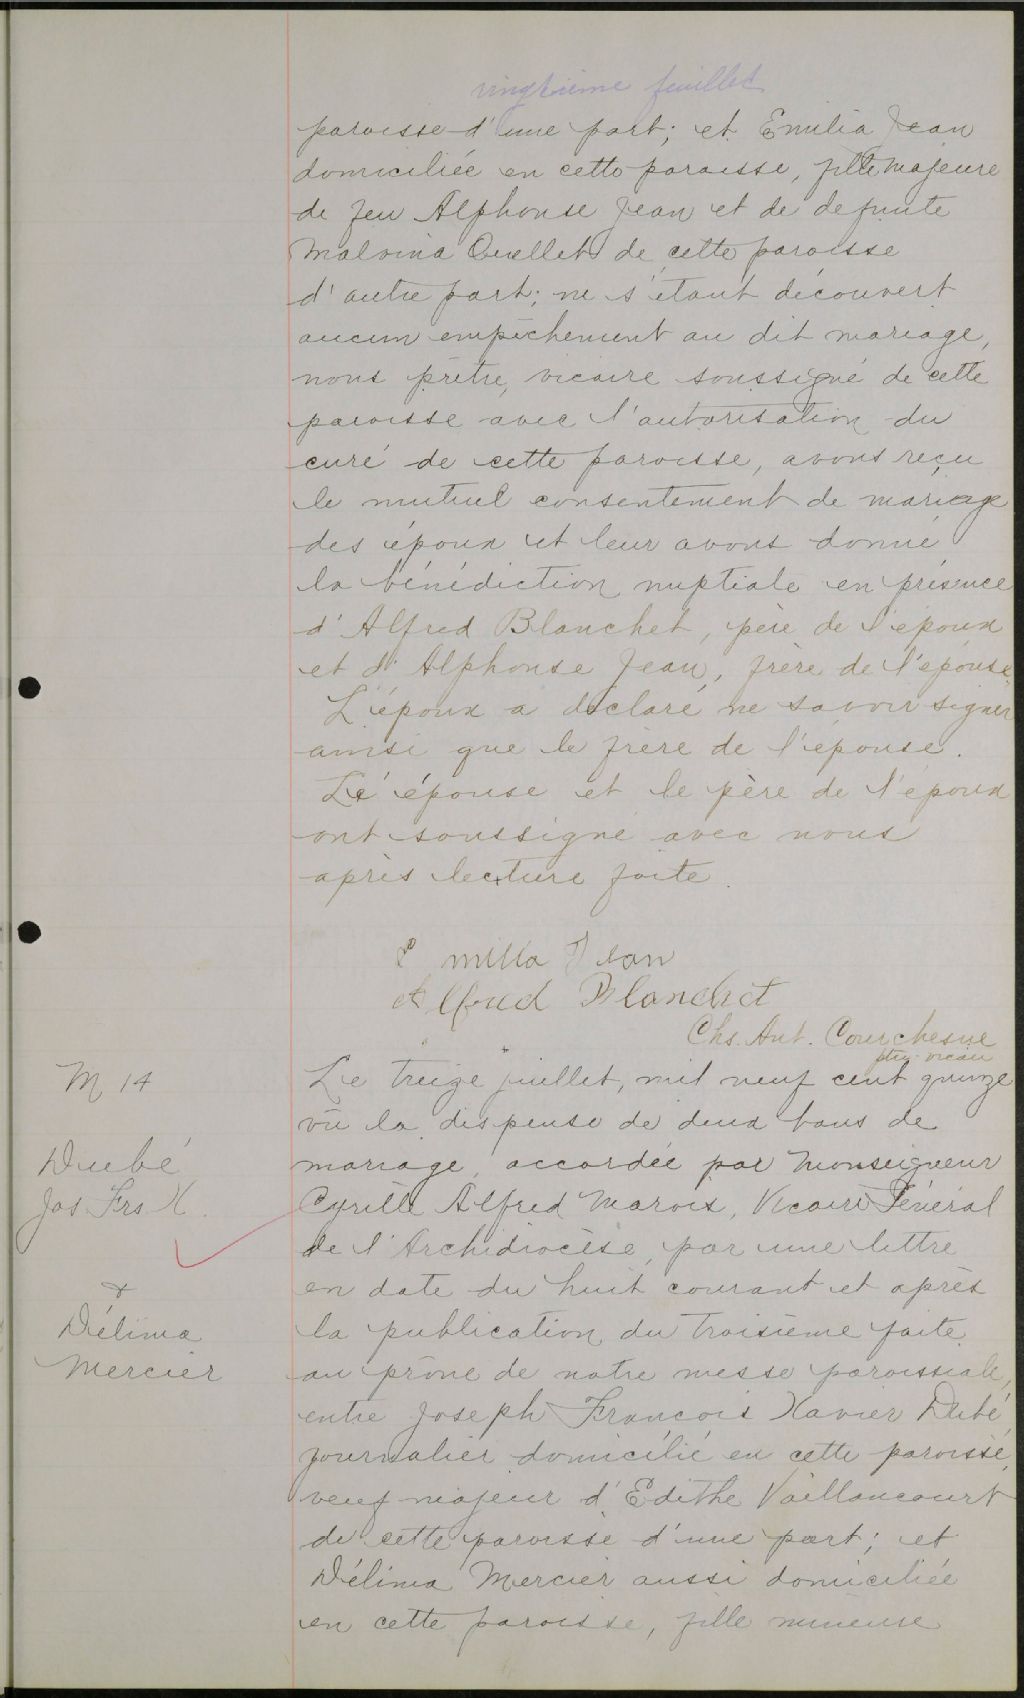 vingtième feuillet
paroisse d'une part; et Emilia Jean
domiciliée en cette paroisse, fille majeure
de feu Alphonse Jean et de defunte
Malvina Ouellet de cette paroisse
d'autre part; ne s'étant découvert
aucun empêchement au dit mariage,
nous prêtre, vicaire soussigné de cette
paroisse avec l'autorisation du
curé de cette paroisse, avons reçu
le mutuel consentement de mariage
des époux et leur avons donné
la bénédiction nuptiale en présence
d'Alfred Blanchet, père de l'époux
et d'Alphonse Jean, frère de l'épouse.
L'époux a déclaré ne savoir signer
ainsi que le frère de l'épouse.
Lé épouse et le père de l'époux
ont soussigné avec nous
après lecture faite.
Emilia Jean
Alfred Blanchet
Chs. Ant. Courchesne
ptre. vicaire
M 14
Dubé
Jos Frs X
&
Délima
Mercier
Le treize juillet, mil neuf cent quinze
vu la dispense de deux bans de
mariage, accordée par Monseigneur
Cyrille Alfred Marois, Vicaire Général
de l'Archidiocèse, par une lettre
en date du huit courant et après
la publication du troisième faite
au prône de notre messe paroissiale,
entre Joseph François Xavier Dubé
journalier domicilié en cette paroisse,
veuf majeur d'Edithe Vaillancourt
de cette paroisse d'une part; et
Délima Mercier aussi domiciliée
en cette paroisse, fille mineure